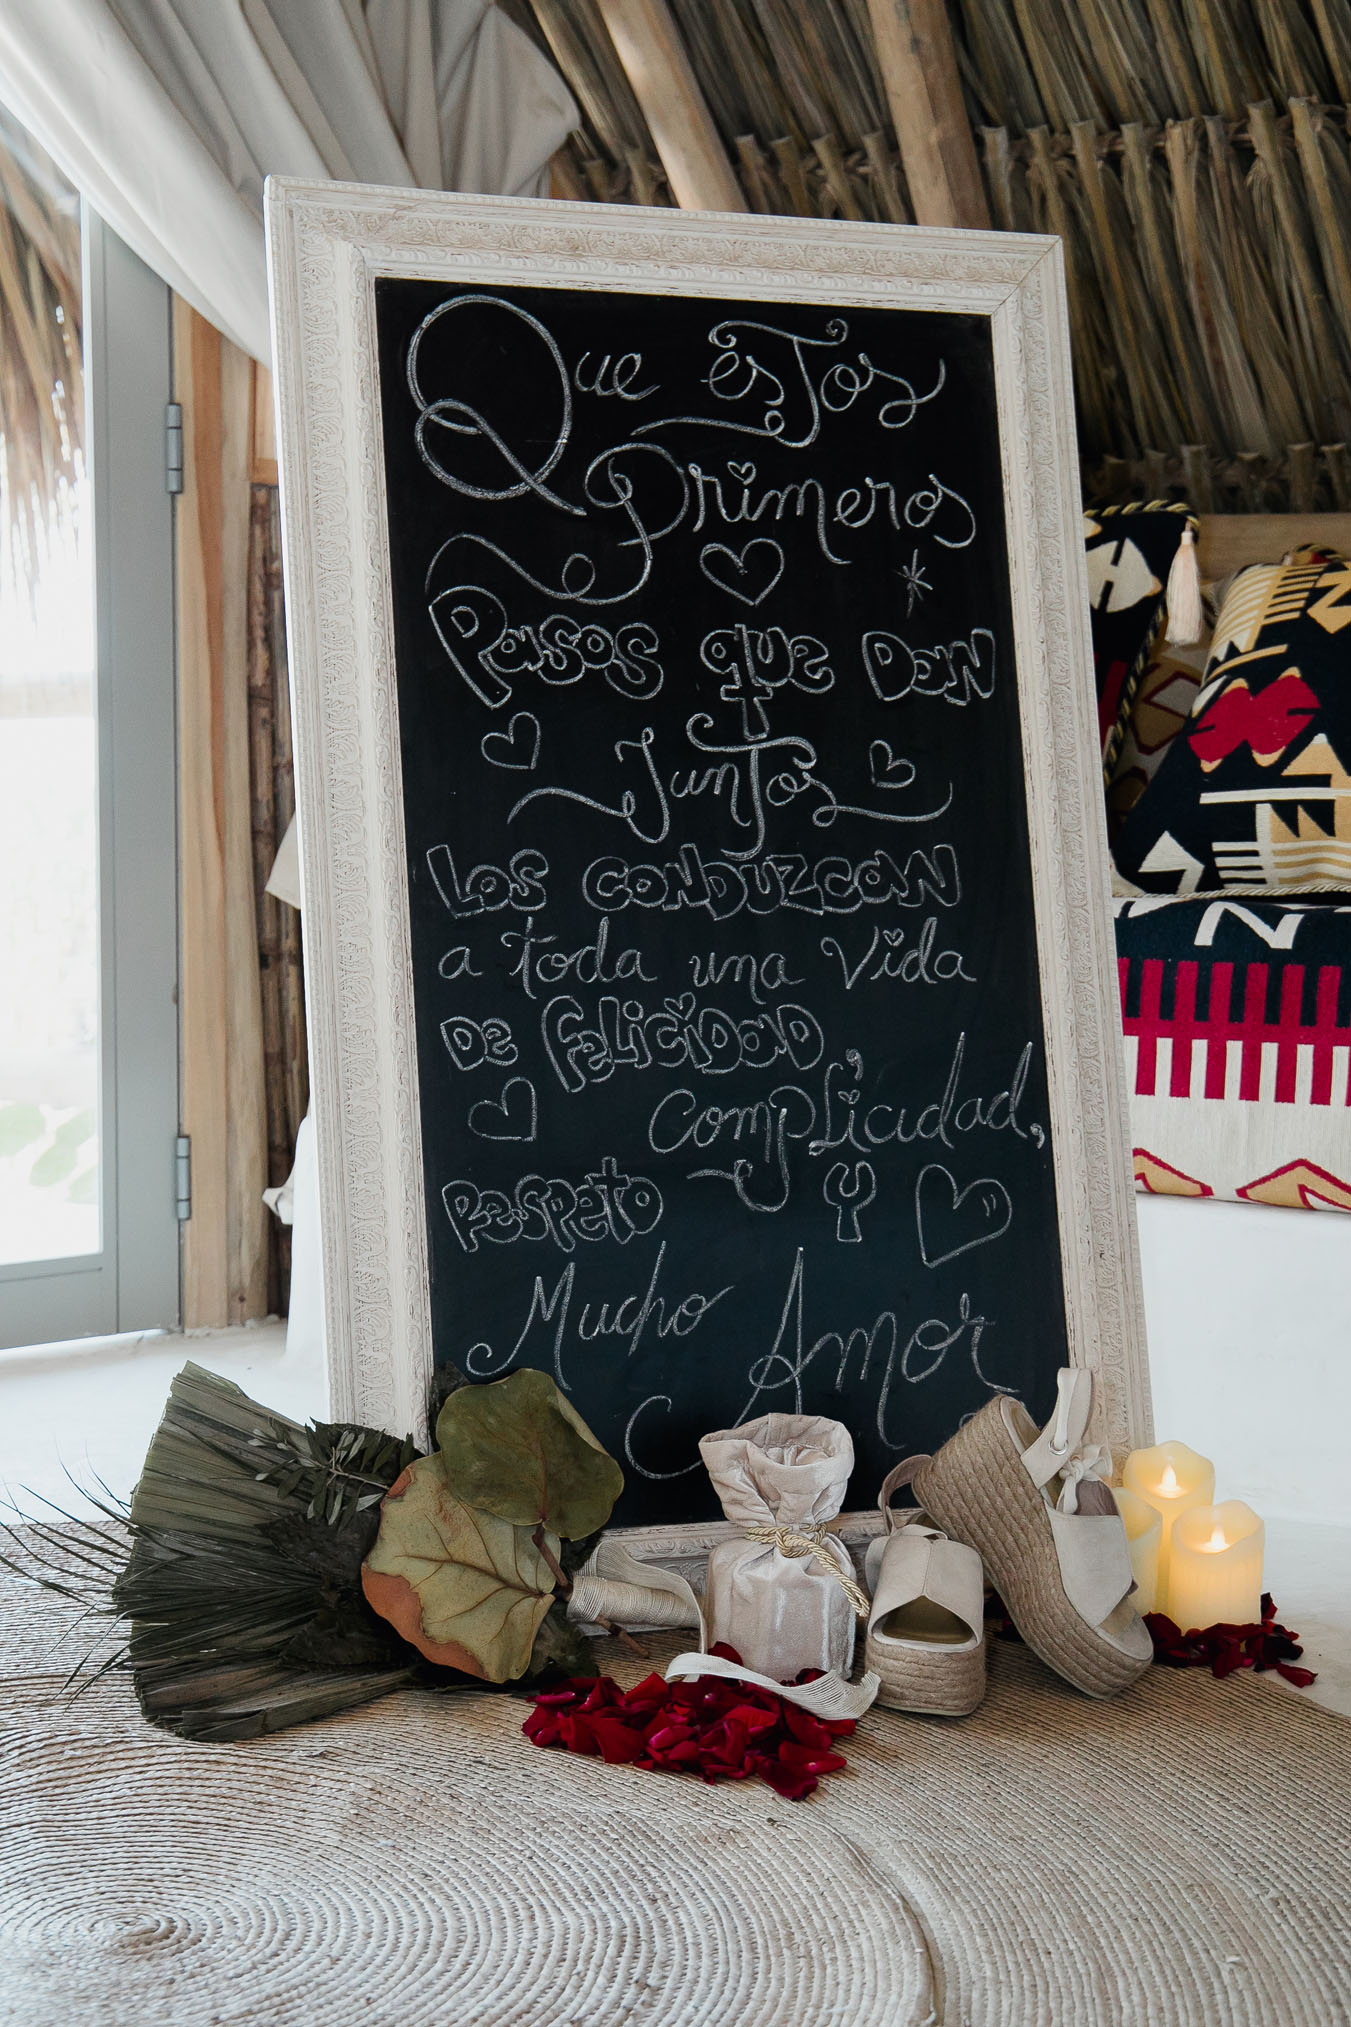 Que esTos
Primeros
Pasos que Dan
JunTos
Los conduzcan
a toda una vida
De felicidad,
complicidad,
Respeto y
Mucho Amor